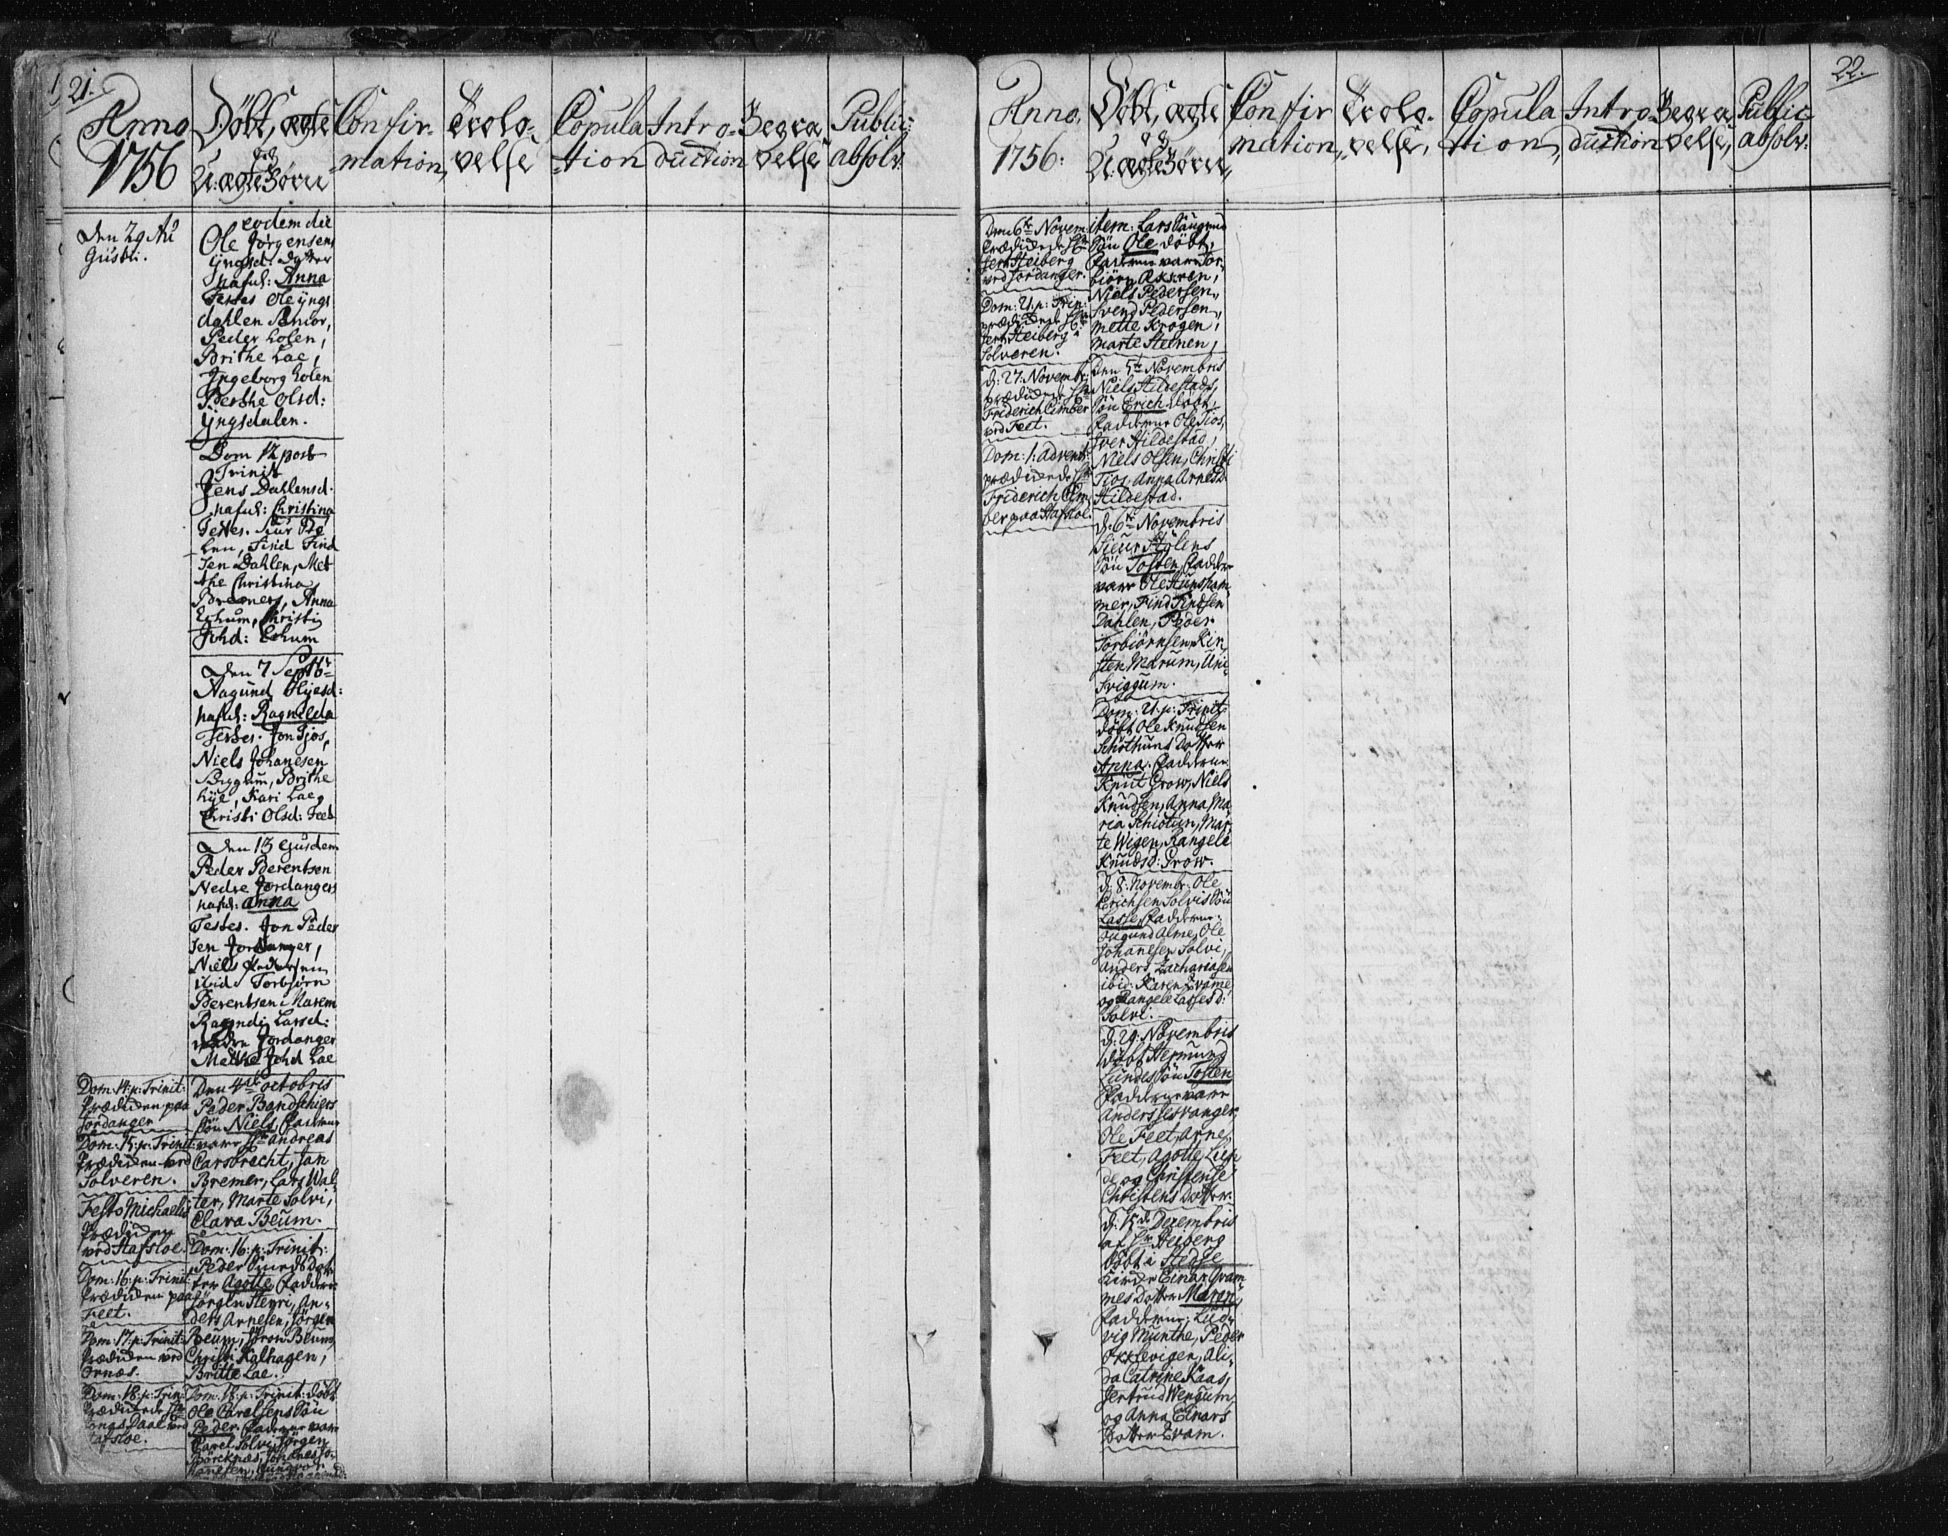 21.
Anno
1756
Døbt, ægte
og
U:ægte Børn
Confir-
mation,
Trolo-
velse
Copula
-tion
Intro-
duction
Begra
velse
Public:
absolv:
Den 29 Au
gusti.
eodem die
Ole Jørgensens
Yngsd: dotter
Anna
Testes Ole Yngs
dahlen Senior,
Peder Holen,
Brithe Lae,
Ingeborg Holen
Berthe Olsd:
Yngsdalen.
Dom 12 post
Trinit
Jens Dahlens d.
nafnl: Christina
Testes. Siur Bo
len, Find Find
sen Dahlen, Met
the Christina
Bremers, Anna
Echum, Christi
Johd: Echum
Den 7 Septbr
Aagund Hyes d:
nafnl: Ragnilda
Testes. Jon Tjos,
Niels Johanesen
Bryggum, Brithe
Hye, Kari Lae,
Christi Olsd: Feet
Den 13 ejusdem
Peder Berentsen
Nedre Jordangers
nafnl: Anna
Testes. Jon Peder
sen Jordanger,
Niels Pedersen
ibid Torbiørn
Berentsen Marem
Ragndi Larsd:
nedre Jordanger
Mette Johd Lae
Dom: 14: p: Trinit:
Prædiken paa
Jordanger
Dom: 15: p: Trinit:
Prædiken ved
Solveren.
Festo Michaelis
Prædiken
ved Hafsloe.
Dom: 16: p: Trinit:
Prædiken paa
Feet.
Dom: 17: p: Trinit:
Prædiken ved
Ornæs.
Dom: 18: p: Trin:
Prædikede Hr
Daal ved
Hafsloe.
Den 4de octobris
Peder Bondschiers
Søn Niels Faddere
vare Hr Andreas
Carsbrecht, Jan
Bremer, Lars Wal
ter, Marte Solvi,
Clara Beum.
Dom: 16: p: Trinit:
Peder Siurds Dot
ter Agotte Faddere
Jørgen Henri, An-
ders Arnesen, Jørgen
Beum, Søron Beum,
Christi Kalhagen,
Britte Lae.
Dom: 18: p: Trinit: døbt
Ole Carelsens Søn
Peder Faddere vare
Carel Solvi, Jørgen
Børcknæs, Johannes Jo-
hanesen,
22.
Anno,
1756:
Døbt, ægte
og
U:ægte Børn,
Confir
mation,
Trolo-
velse,
Copula
tion,
Intro
duction
Begra
velse,
Public
absolv:
Den 6te Novem:
Prædikede Hr
Gert Heiberg
ved Jordanger.
Dom: 21: p: Trin:
prædikede Hr
Gert Heiberg i
Solveren.
d: 27: Novembr:
prædikede Hr
Friderich Cimber
ved Feet.
Dom: 1: advent:
prædikede Hr
Friderich Cim
ber paa Hafsloe.
item: Lars Saugmd
Søn Ole døbt,
Fadderne vare Tor
biørn Ækren,
Niels Pedersen,
Svend Pedersen,
Mette Krogen,
Marte Steinen,
Den 5te Novembris
Niels Hildestads
Søn Erich døbt,
Fadderne Ole Tios,
Iver Hildestad,
Niels Olsen, Christi
Tios, Anna Arnesd:
Hildestad.
d: 6te Novembris
Sieur Hølens
Søn Tosten, Faddere
vare Ole Hunsham
mer, Find Findsen
Dahlen, Peder
Torbiørnsen, Kir
sten Marum, Uni
Friggum.
Dom: 21: p: Trinit:
døbt Ole Knudsen
Schiøthuns Dotter
Anna. Fadderne
Knut Grow, Niels
Knudsen, Anna Ma
ria Schiøtun, Mar
te Wigen, Rangele
Knudsd: Grow.
d: 8: Novembr: Ole
Erichsen Solvis Søn
Lasse, Fadderne.
Augund Alme, Ole
Johannesen Solvi,
Anders Zachariasen
ibid: Karen Kvame
og Rangele Lasses d:
Solvi.
d: 29: Novembris
døbt Hermund
Lundes Søn Tosten
Fadderne vare
Anders Sesvanger,
Ole Feet, Arne
Feet, Agotte Lun
de og Christense
Christens Datter.
d: 15de Decembris
af Hr Heiberg
døbt i Stedje
Kirke Einar Qvam
mes Dotter Maren,
Fadderne: Lud-
vig Munthe, Peder
Okklevigen, Ali-
da Catrine Kaas,
Gertrud Wengum,
og Anna Einars
Dotter Kvam.